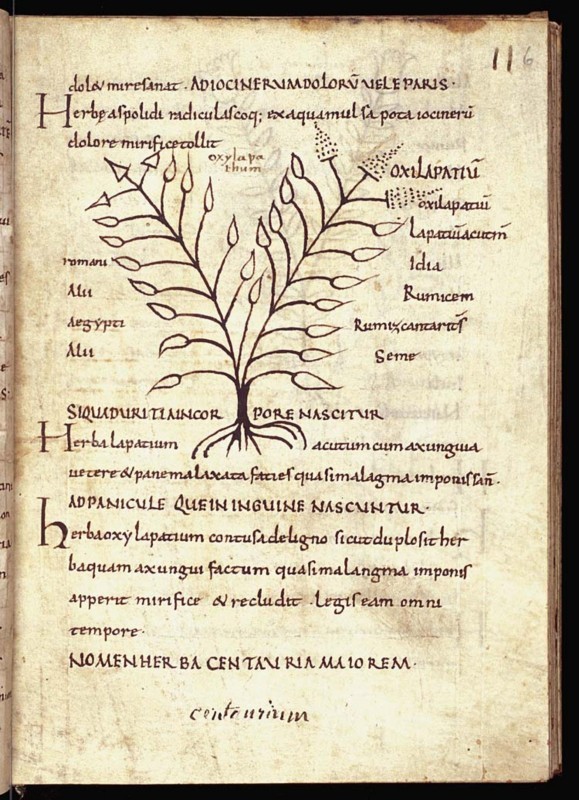 116
dolo& mire sanat · AD IOCINERUM DOLORŪ UEL EPARIS ·
Herbe aspolidi radicula scoq; ex aqua mulsa pota iocinerū
dolore mirifice tollit
oxylapa
thum
OXILAPATIŪ
oxilapatiū
Lapatiū acutm̄
romani Idia
Alii Rumicem
Aegypti
Alii Seme
SI QUA DURITIA IN CORPORE NASCITUR
Herba lapatium acutum cum axungia
uetere & pane malaxata facies quasi malagma imponis san̄ ·
AD PANICULE QUE IN INGUINE NASCUNTUR ·
herba oxylapatium contusa de ligno sicut duplo sit her
ba quam axungui factum quasi malangma imponis
apperit mirifice & recludit · Legis eam omni
tempore ·
NOMEN HERBA CENTAURIA MAIOREM ·
centaurium